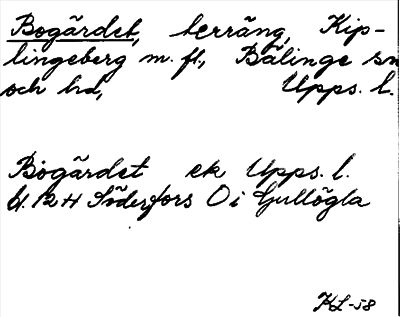 Bogärdet, terräng, Kip-
lingeberg m. fl., Bälinge sn
och hd, Upps. l.
Bogärdet ek Upps. l.
bl. 12 H Söderfors O i Gullögla
KL-58